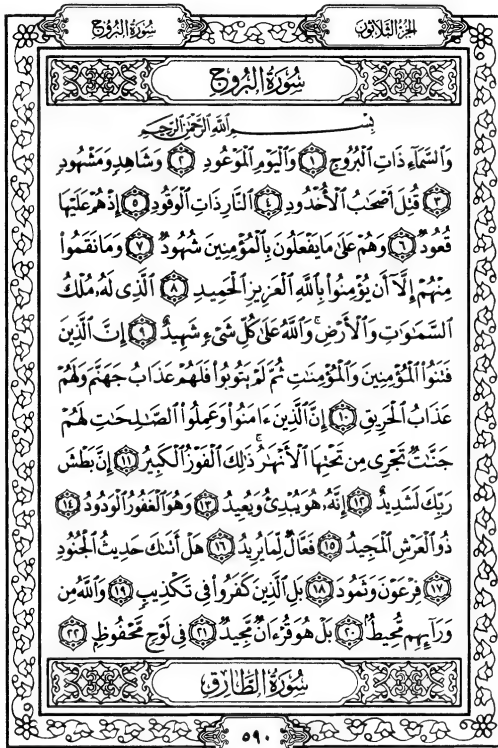 الجزء الثلاثون
سورة البروج
سُورَةُ الْبُرُوجِ
بِسْمِ اللَّهِ الرَّحْمَٰنِ الرَّحِيمِ
وَالسَّمَاءِ ذَاتِ الْبُرُوجِ ١ وَالْيَوْمِ الْمَوْعُودِ ٢ وَشَاهِدٍ وَمَشْهُودٍ
٣ قُتِلَ أَصْحَابُ الْأُخْدُودِ ٤ النَّارِ ذَاتِ الْوَقُودِ ٥ إِذْ هُمْ عَلَيْهَا
قُعُودٌ ٦ وَهُمْ عَلَىٰ مَا يَفْعَلُونَ بِالْمُؤْمِنِينَ شُهُودٌ ٧ وَمَا نَقَمُوا
مِنْهُمْ إِلَّا أَن يُؤْمِنُوا بِاللَّهِ الْعَزِيزِ الْحَمِيدِ ٨ الَّذِي لَهُ مُلْكُ
السَّمَاوَاتِ وَالْأَرْضِ ۚ وَاللَّهُ عَلَىٰ كُلِّ شَيْءٍ شَهِيدٌ ٩ إِنَّ الَّذِينَ
فَتَنُوا الْمُؤْمِنِينَ وَالْمُؤْمِنَاتِ ثُمَّ لَمْ يَتُوبُوا فَلَهُمْ عَذَابُ جَهَنَّمَ وَلَهُمْ
عَذَابُ الْحَرِيقِ ١٠ إِنَّ الَّذِينَ ءَامَنُوا وَعَمِلُوا الصَّالِحَاتِ لَهُمْ
جَنَّاتٌ تَجْرِي مِن تَحْتِهَا الْأَنْهَارُ ۚ ذَٰلِكَ الْفَوْزُ الْكَبِيرُ ١١ إِنَّ بَطْشَ
رَبِّكَ لَشَدِيدٌ ١٢ إِنَّهُ هُوَ يُبْدِئُ وَيُعِيدُ ١٣ وَهُوَ الْغَفُورُ الْوَدُودُ ١٤
ذُو الْعَرْشِ الْمَجِيدُ ١٥ فَعَّالٌ لِّمَا يُرِيدُ ١٦ هَلْ أَتَاكَ حَدِيثُ الْجُنُودِ
١٧ فِرْعَوْنَ وَثَمُودَ ١٨ بَلِ الَّذِينَ كَفَرُوا فِي تَكْذِيبٍ ١٩ وَاللَّهُ مِن
وَرَائِهِم مُّحِيطٌ ٢٠ بَلْ هُوَ قُرْءَانٌ مَّجِيدٌ ٢١ فِي لَوْحٍ مَّحْفُوظٍ ٢٢
سُورَةُ الطَّارِقِ
٥٩٠